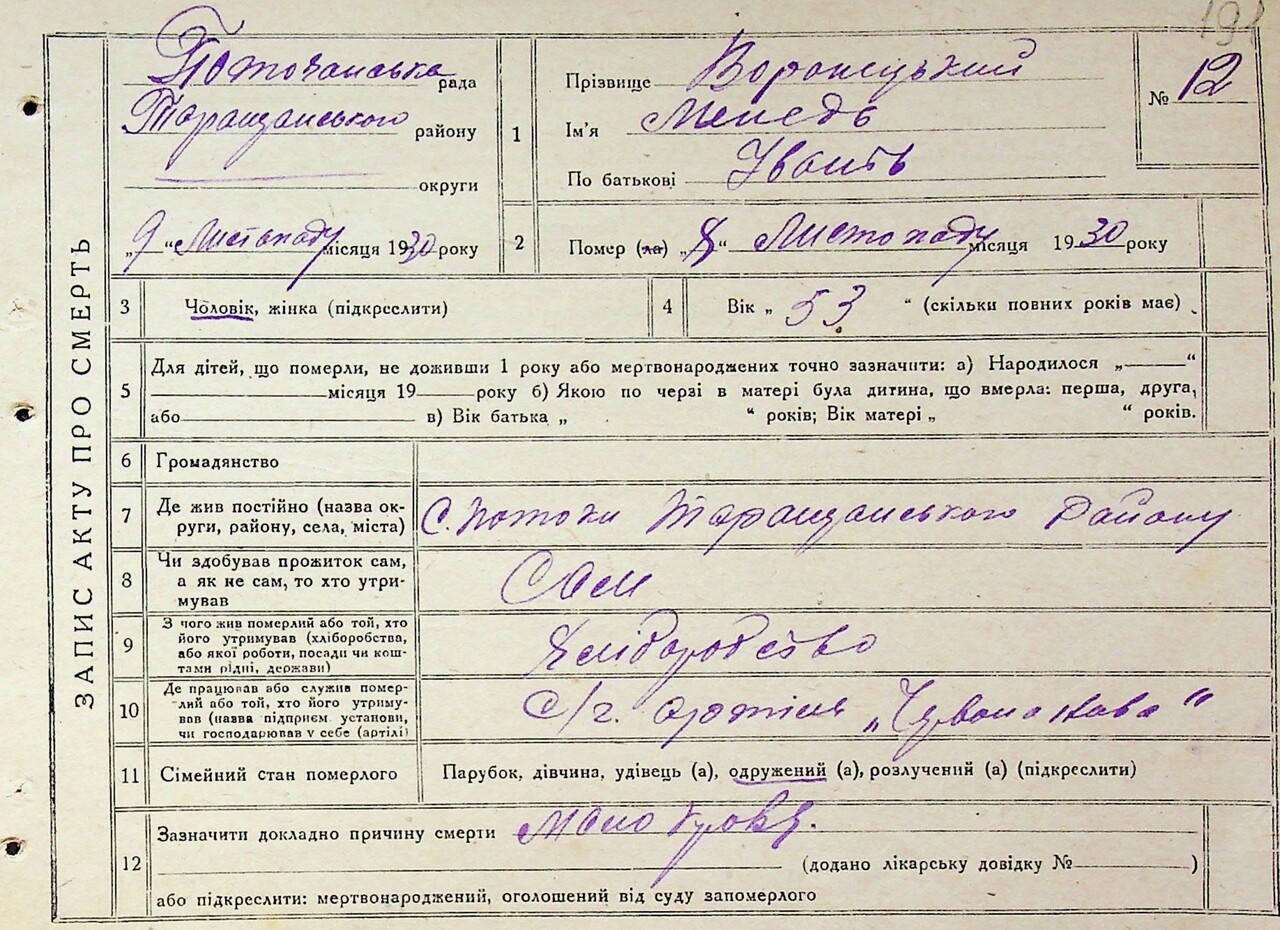 ЗАПИС АКТУ ПРО СМЕРТЬ
Поточанська рада
Таращанського району
округи
„9“ Листопаду місяця 1930 року
1
Прізвище Воронецький
Ім'я
По батькові
№ 12
2
Помер (ла) „8“ Листопаду місяця 1930 року
3
Чоловік, жінка (підкреслити)
4
Вік „ 53 “ (скільки повних років має)
5
Для дітей, що померли, не доживши 1 року або мертвонароджених точно зазначити: а) Народилося „ “
місяця 19 року б) Якою по черзі в матері була дитина, що вмерла: перша, друга,
або в) Вік батька „ “ років; Вік матері „ “ років.
6
Громадянство
7
Де жив постійно (назва ок-
руги, району, села, міста)
С. Потоки Таращанського Району
8
Чи здобував прожиток сам,
а як не сам, то хто утри-
мував
Сам
9
З чого жив померлий або той, хто
його утримував (хліборобства,
або якої роботи, посади чи кош-
тами рідні, держави)
Хліборобство
10
Де працював або служив помер-
лий або той, хто його утриму-
вов (назва підприєм установи,
чи господарював у себе (артілі)
С/г. артіль
11
Сімейний стан померлого
Парубок, дівчина, удівець (а), одружений (а), розлучений (а) (підкреслити)
12
Зазначити докладно причину смерти мало
(додано лікарську довідку № )
або підкреслити: мертвонароджений, оголошений від суду запомерлого